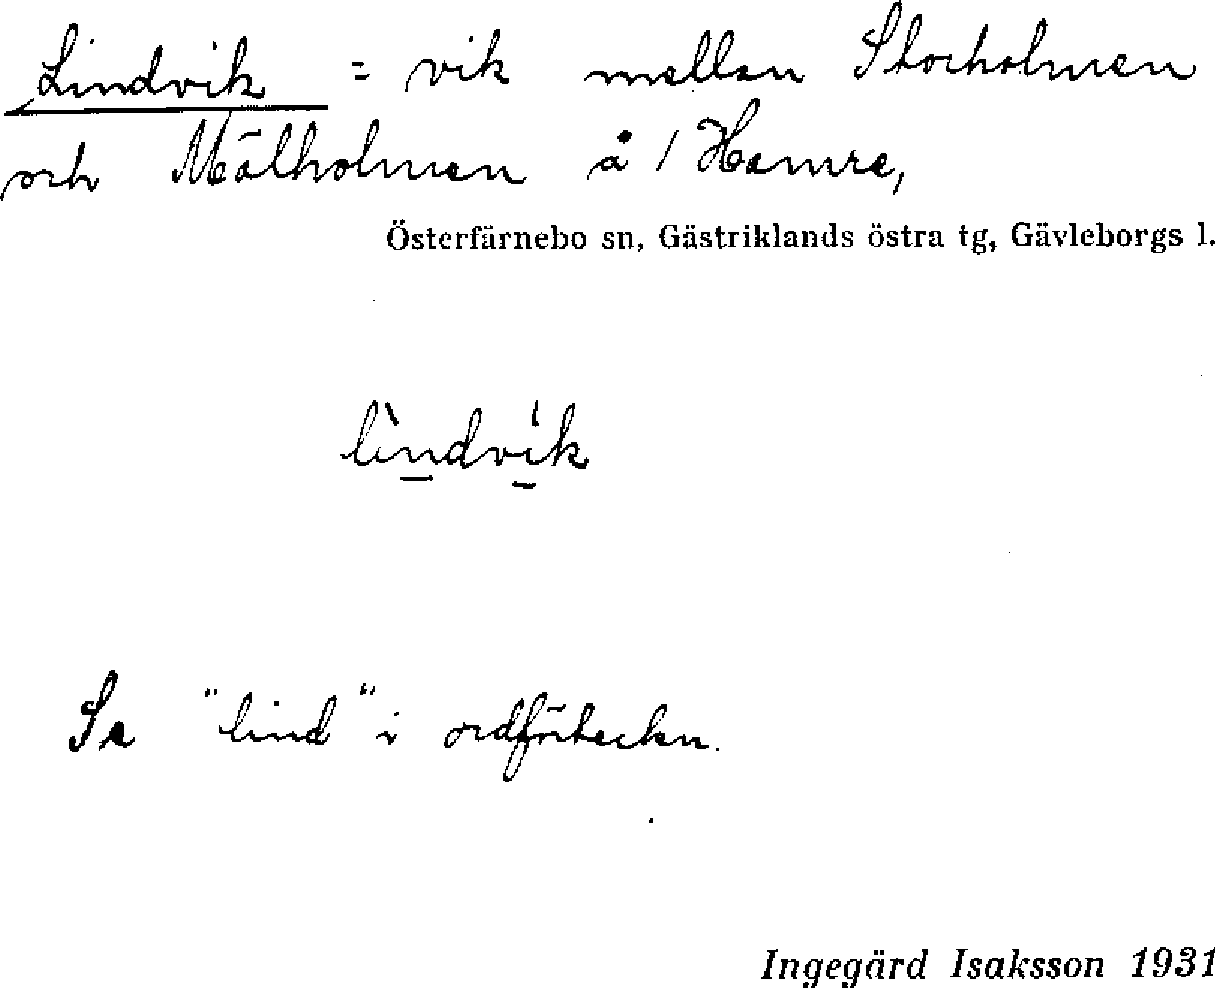 Lindvik = vik mellan Storholmen
och Mälholmen å / Hamre,
Österfärnebo sn, Gästriklands östra tg, Gävleborgs l.
lìndvík
Se "lind" i ordförteckn.
Ingegärd Isaksson 1931